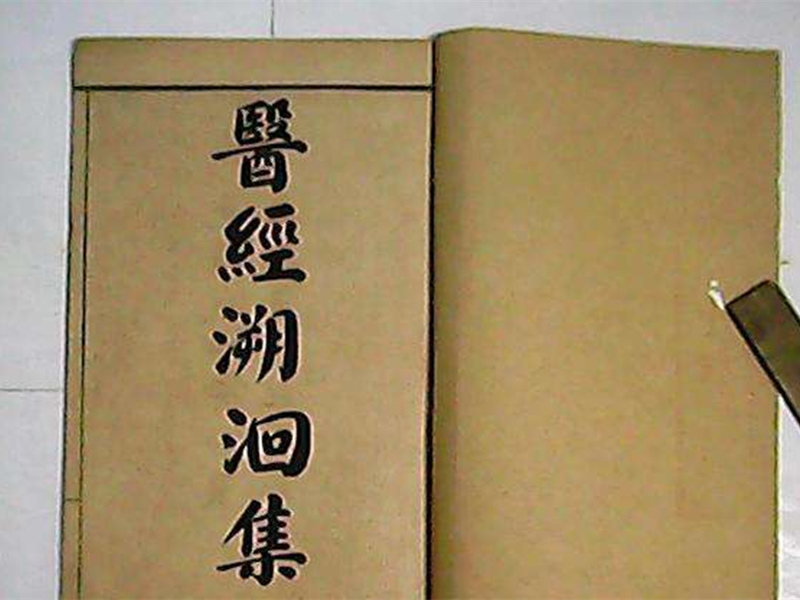 醫經溯洄集